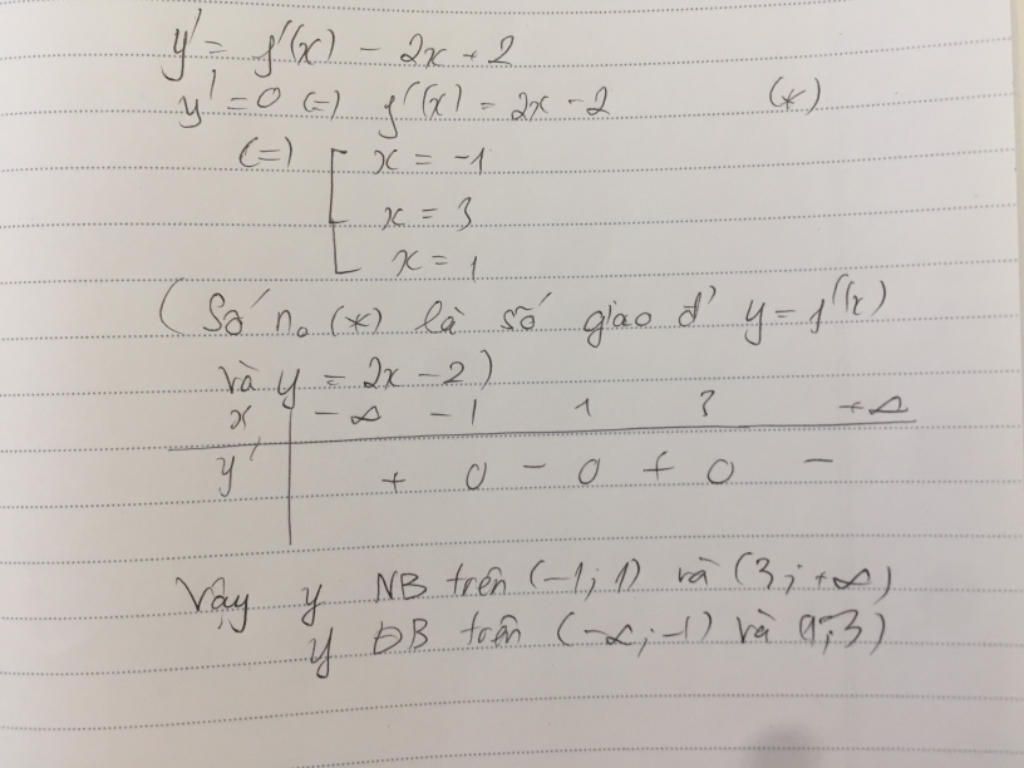 y' = f'(x) - 2x + 2
y' = 0 (=) f'(x) = 2x - 2 (*)
(=) [ x = -1
x = 3
x = 1
(Số n₀ (*) là số giao đ' y = f'(x)
và y = 2x - 2)
x -∞ -1 1 3 +∞
y' + 0 - 0 + 0 -
Vậy y NB trên (-1; 1) và (3; +∞)
y ĐB trên (-∞; -1) và (1; 3)